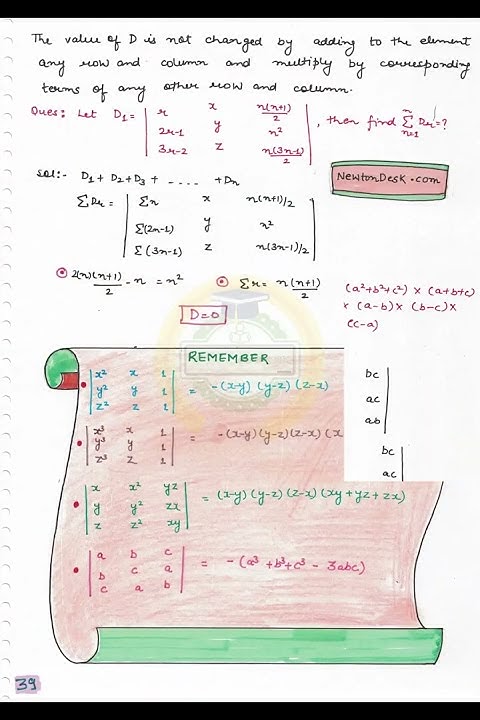 The value of D is not changed by adding to the element
any row and column and multiply by corresponding
terms of any other row and column.
Ques: Let D1 = | r x n(n+1)/2 |
| 2r-1 y n² |
| 3r-2 z n(3n-1)/2 | , then find Σ(r=1 to n) Dr = ?
Sol:- D1 + D2 + D3 + ..... + Dn
NEWTONDESK.COM
ΣDr = | Σn x n(n+1)/2 |
| Σ(2n-1) y n² |
| Σ(3n-1) z n(3n-1)/2 |
2(n)(n+1)/2 - n = n²
Σr = n(n+1)/2
(a²+b²+c²) × (a+b+c)
× (a-b) × (b-c) ×
(c-a)
D=0
REMEMBER
| x² x 1 |
| y² y 1 | = -(x-y) (y-z) (z-x)
| z² z 1 |
bc |
ac |
ab |
| x³ x 1 |
| y³ y 1 | = -(x-y) (y-z) (z-x) (x
| z³ z 1 |
bc |
ac |
| x x² yz |
| y y² zx | = (x-y) (y-z) (z-x) (xy + yz + zx)
| z z² xy |
| a b c |
| b c a | = -(a³ + b³ + c³ - 3abc)
| c a b |
39